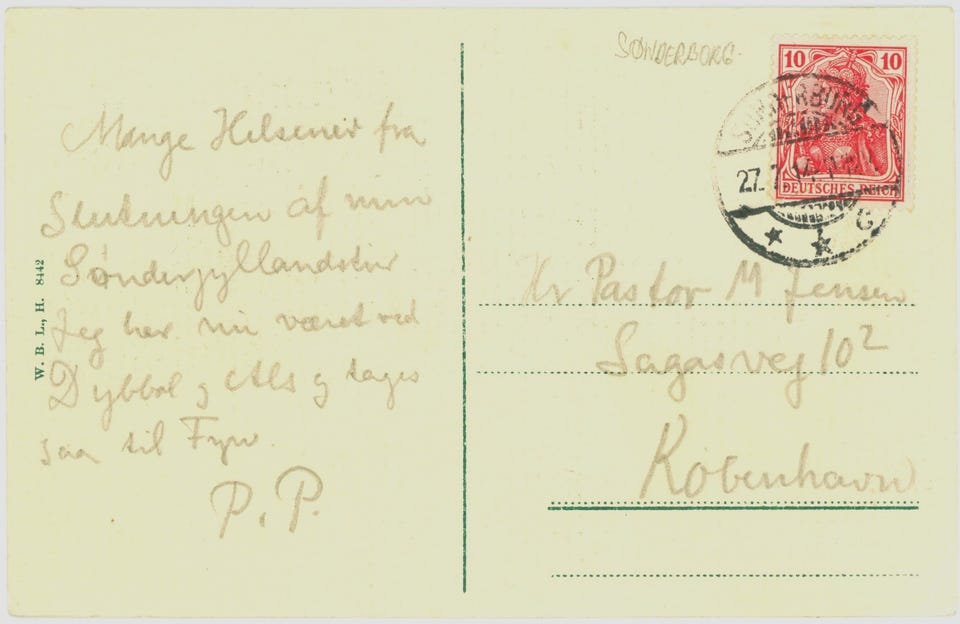 SØNDERBORG.
10 10
DEUTSCHES REICH
SONDERBURG
27.7.14
G
Mange Hilsener fra
Slutningen af min
Sønderjyllandstur.
Jeg har nu været ved
Dybbøl og Als og tages
saa til Fyn.
P. P.
W. B. L., H. 8442
Hr Pastor M Jensen
Sagasvej 10²
København